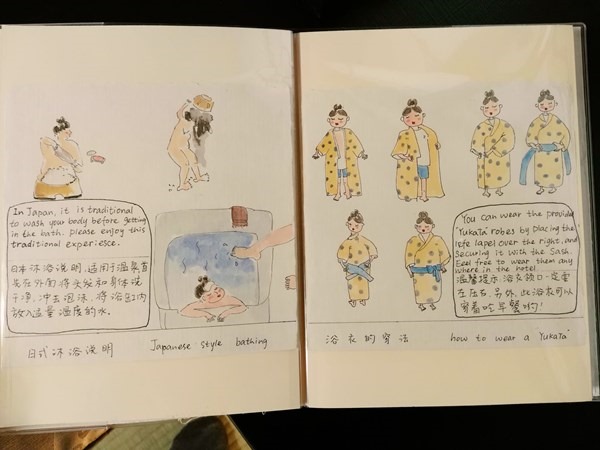 In Japan, it is traditional
to wash your body before getting
in the bath. please enjoy this
traditional experiesce.
日本沐浴说明.适用于温泉首
先在外面将头发和身体洗
干净,冲去泡沫.将浴缸内
放入适量温度的水。
日式沐浴说明
Japanese style bathing
You can wear the provide
"Yukata" robes by placing the
left lapel over the right, and
securing it with the Sash.
Feel free to wear them any
where in the hotel
温馨提示 浴衣领口一定要
左压右.另外,此浴衣可以
穿着吃早餐哟!
浴衣的穿法
how to wear a Yukata